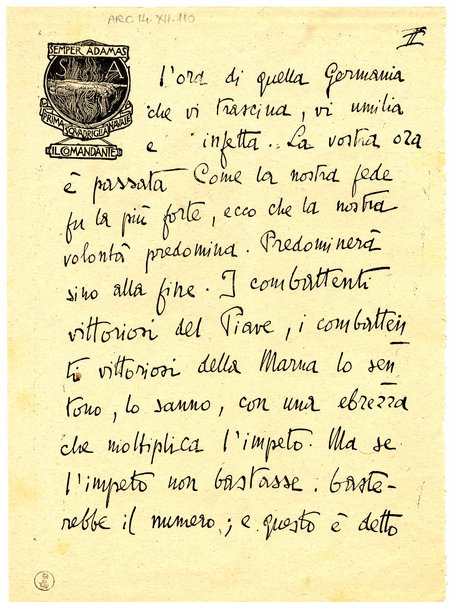 ARC. 14. XII. 110
II
SEMPER ADAMAS
S A
PRIMA SQUADRIGLIA NAVALE
IL COMANDANTE
l'ora di quella Germania
che vi trascina, vi umilia
e infetta. La vostra ora
è passata Come la nostra fede
fu la più forte, ecco che la nostra
volontà predomina. Predominerà
sino alla fine. I combattenti
vittoriosi del Piave, i combatten
ti vittoriosi della Marna lo sen
tono, lo sanno, con una ebrezza
che moltiplica l'impeto. Ma se
l'impeto non bastasse. baste-
rebbe il numero; e questo è detto